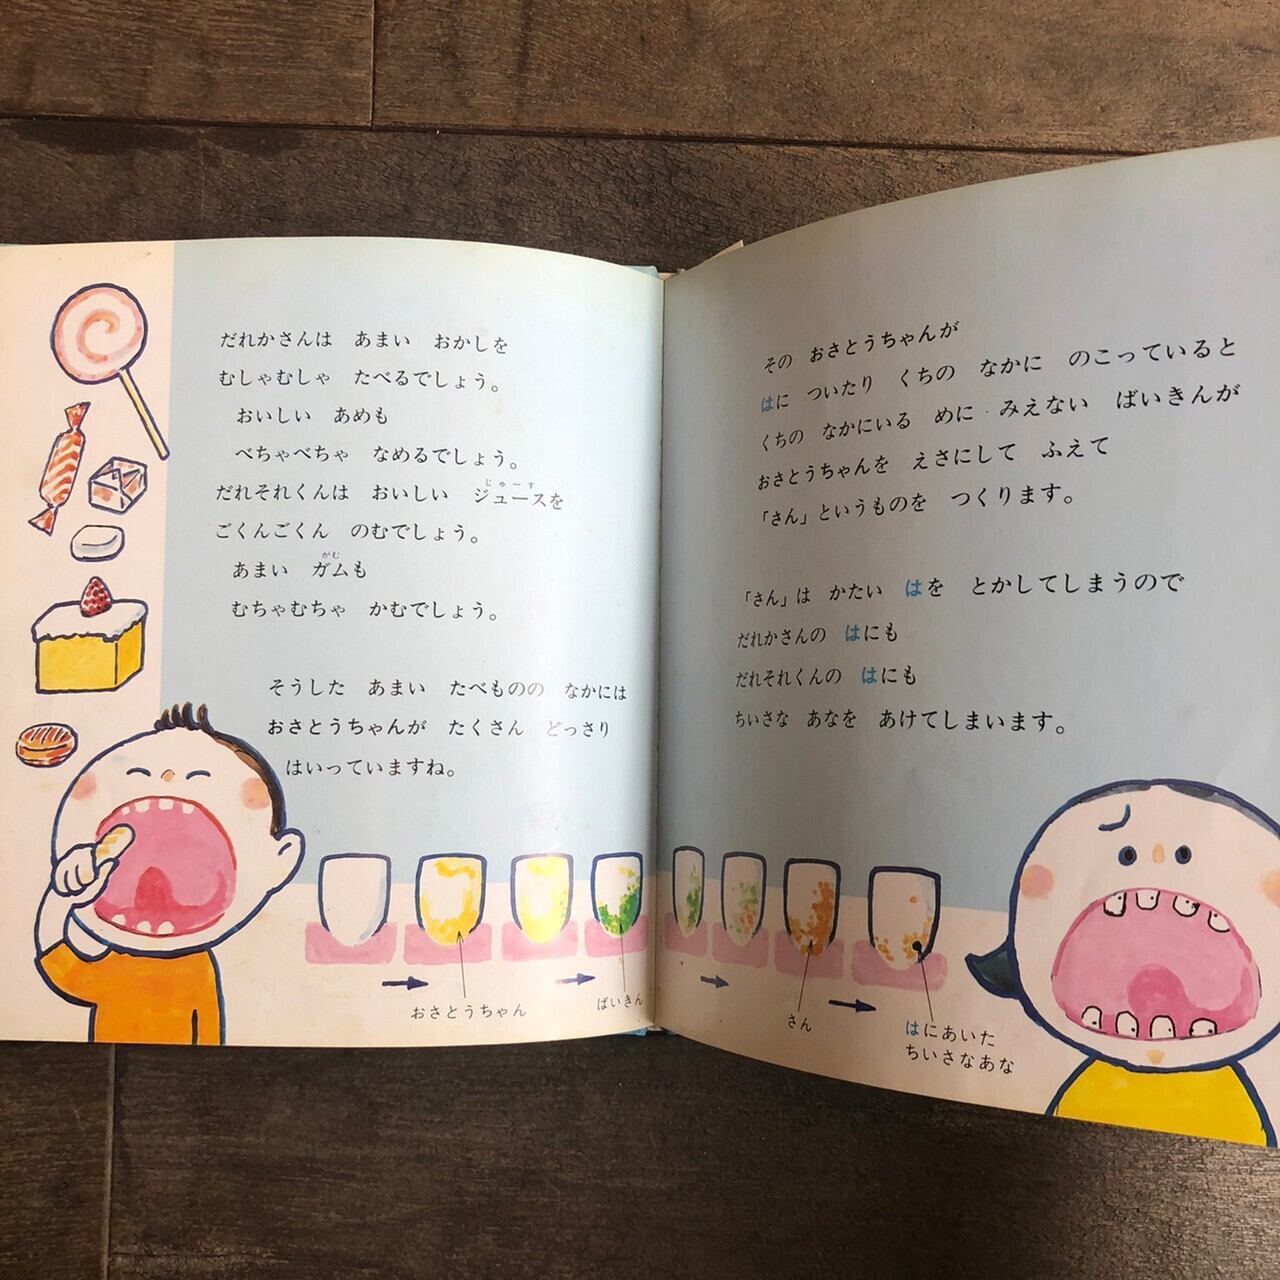 だれかさんは　あまい　おかしを
むしゃむしゃ　たべるでしょう。
おいしい　あめも
べちゃべちゃ　なめるでしょう。
じゅーす
だれそれくんは　おいしい　ジュースを
ごくんごくん　のむでしょう。
がむ
あまい　ガムも
むちゃむちゃ　かむでしょう。
そうした　あまい　たべものの　なかには
おさとうちゃんが　たくさん　どっさり
はいっていますね。
おさとうちゃん
ばいきん
その　おさとうちゃんが
はに　ついたり　くちの　なかに　のこっていると
くちの　なかにいる　めに　みえない　ばいきんが
おさとうちゃんを　えさにして　ふえて
「さん」というものを　つくります。
「さん」は　かたい　はを　とかしてしまうので
だれかさんの　はにも
だれそれくんの　はにも
ちいさな　あなを　あけてしまいます。
さん
はにあいた
ちいさなあな